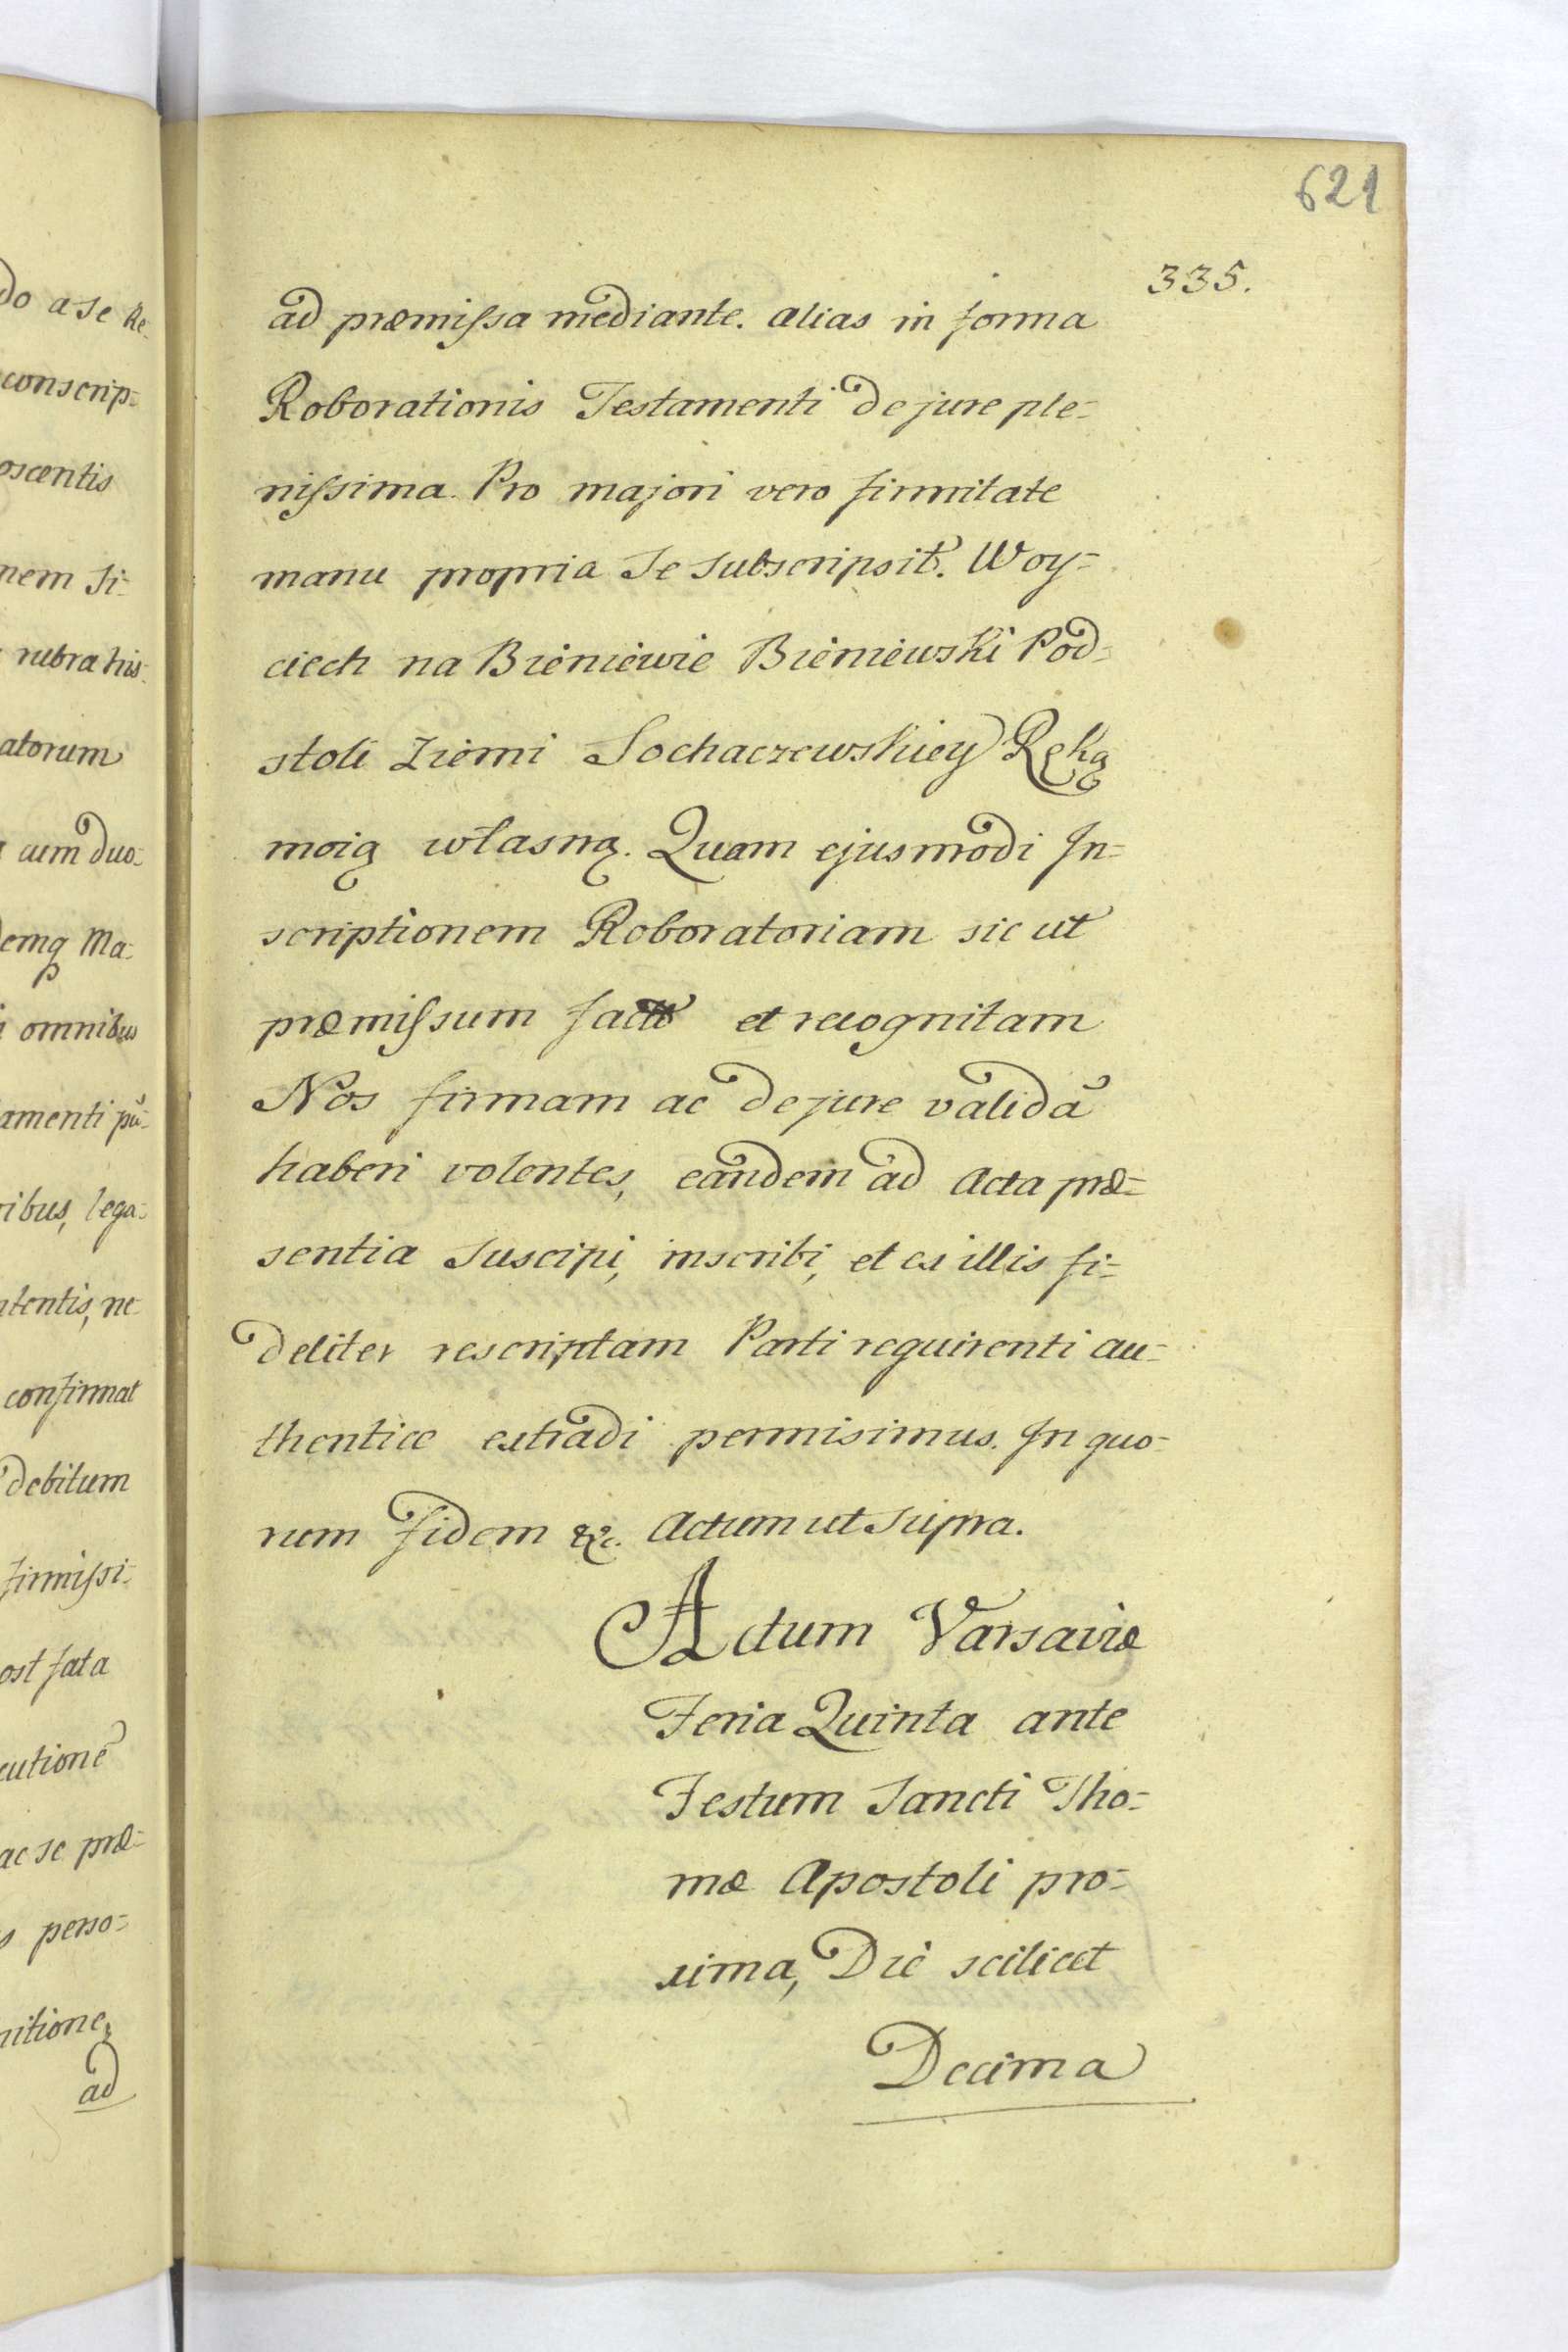 do a se Re-
conscrip=
oscentis
nem Si=
rubra his
atorum
cum duo=
demq Ma=
omnibus
amenti pu=
ribus, lega=
ntentis, ne
confirmat
debitum
firmissi=
ost fata
cutionē
ac se præ=
s perso=
nitione,
ad
621
335.
ad præmissa mediante. alias in forma
Roborationis Testamenti de jure ple=
nissima. Pro majori vero firmitate
manu propria se subscripsit. Woy=
ciech na Bieniewie Bieniewski Pod=
stoli Ziemi Sochaczewskiey Ręką
moią własną. Quam ejusmodi In=
scriptionem Roboratoriam sic ut
præmissum et recognitam
Nos firmam ac de jure validā
haberi volentes, eandem ad Acta præ=
sentia suscipi, inscribi, et ex illis fi=
deliter rescriptam Parti requirenti au=
thentice extradi permisimus. In quo=
rum fidem &c. Actum ut supra.
Actum Varsaviæ
Feria Quinta ante
Festum Sancti Tho=
mæ Apostoli pro=
xima, Die scilicet
Decima